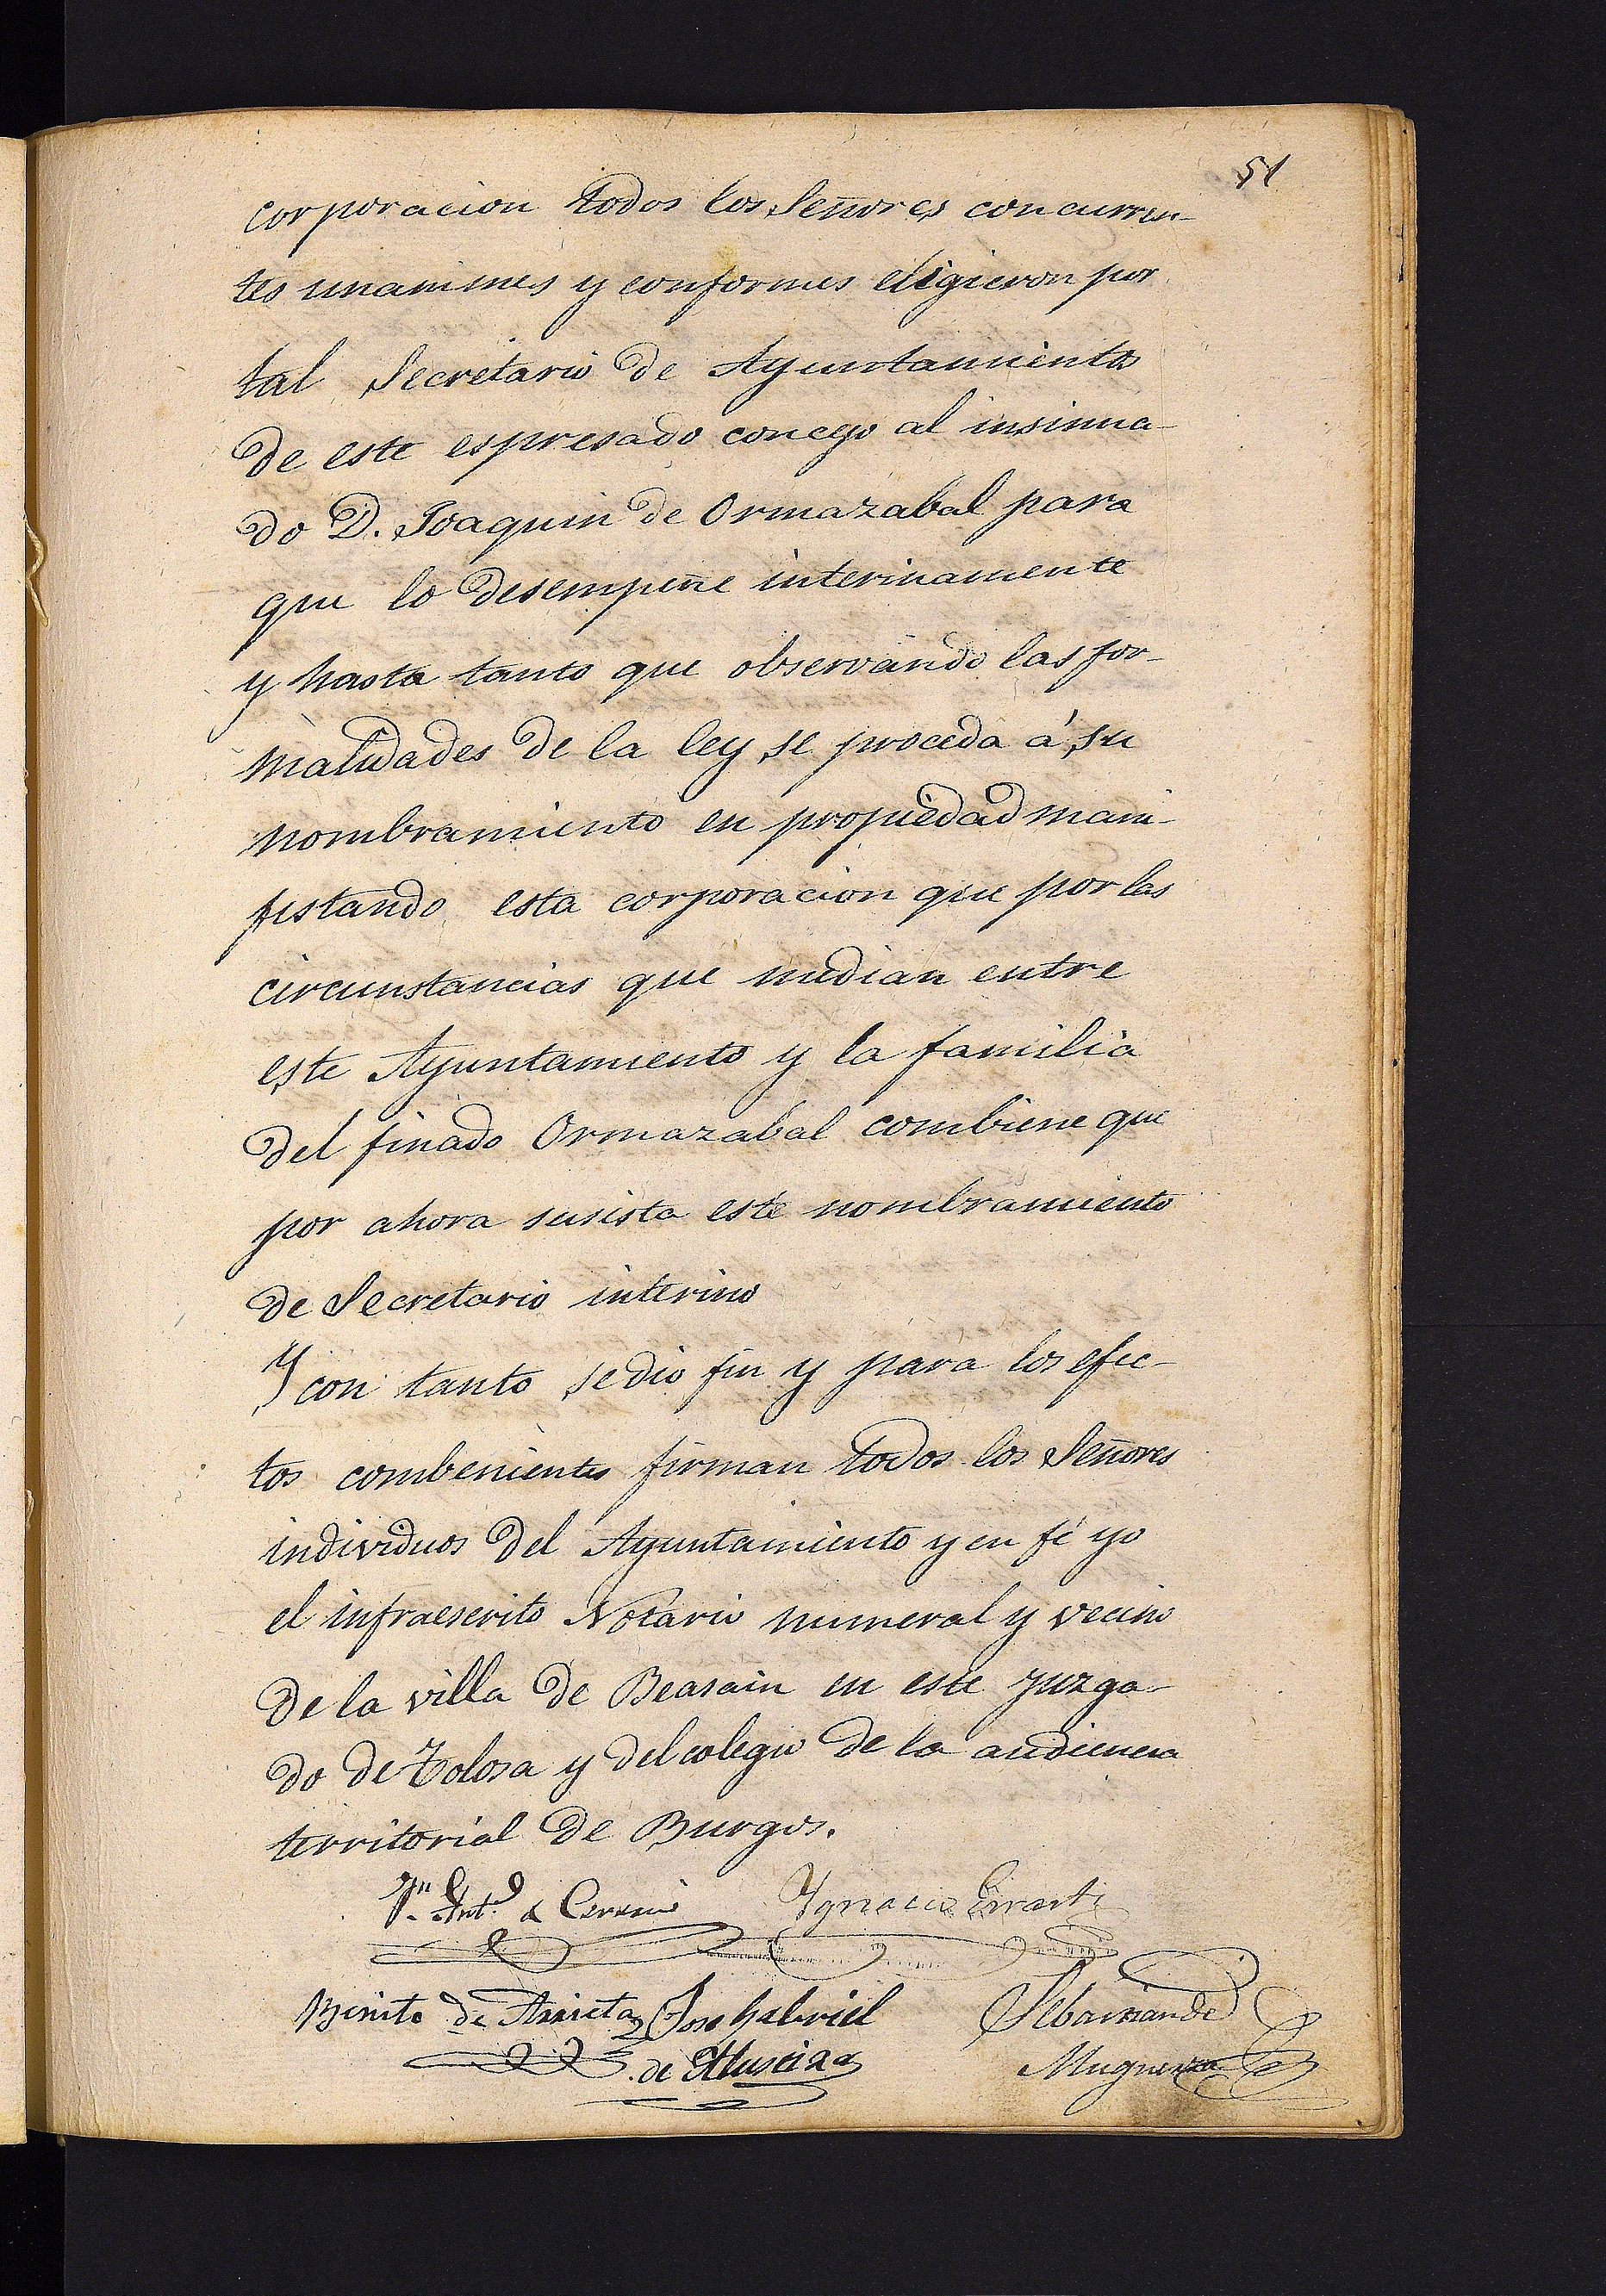 51
corporacion todos los Señores concurren-
tes unanimes y conformes eligieron por
tal Secretario de Ayuntamiento
de este espresado concejo al insinua-
do D. Joaquin de Ormazabal para
que lo desempeñe interinamente
y hasta tanto que observando las for-
malidades de la ley se proceda á su
nombramiento en propiedad mani-
festando esta corporacion que por las
circunstancias que median entre
este Ayuntamiento y la familia
del finado Ormazabal combiene que
por ahora susista este nombramiento
de Secretario interino
Y con tanto se dio fin y para los efec-
tos combenientes firman todos los Señores
individuos del Ayuntamiento y en fé yo
el infraescrito Notario numeral y vecino
de la villa de Beasain en este juzga-
do de Tolosa y del colegio de la audiencia
territorial de Burgos.
Jn Antº Ygnacio
Benito de Arrieta Jose Gabriel Sebastian de
de Muguerza